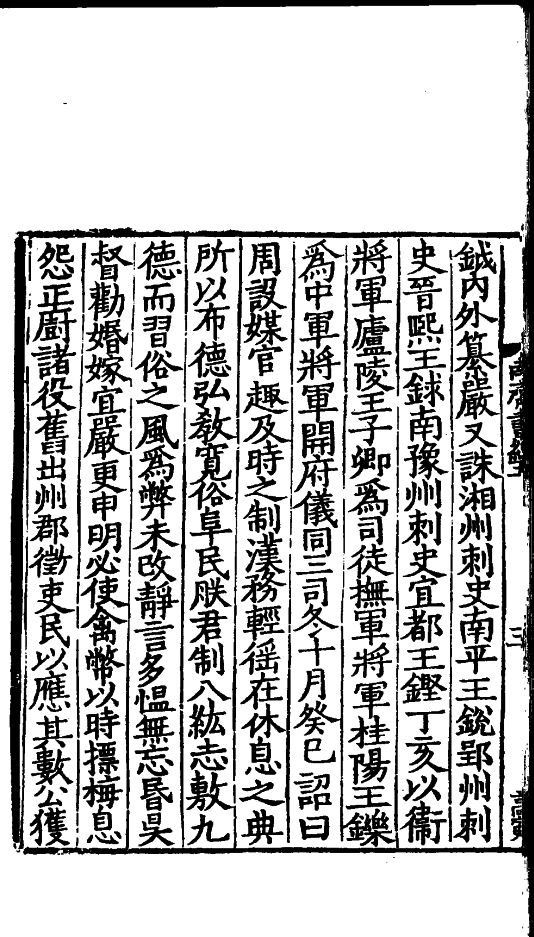 鉞内外纂嚴又誅湘州刺史南平王銳郢州刺
史晉熈王銶南豫州刺史宜都王鏗丁亥以衞
將軍廬陵王子卿爲司徒撫軍將軍桂陽王鑠
爲中軍將軍開府儀同三司冬十月癸巳詔曰
周設媒官趣及時之制漢務輕徭在休息之典
所以布德弘敎寬俗阜民朕君制八紘志敷九
德而習俗之風爲弊未改靜言多愠無忘昏旲
督勸婚嫁宜嚴更申明必使禽幣以時摽梅息
怨正廚諸役舊出州郡徵吏民以應其數公獲